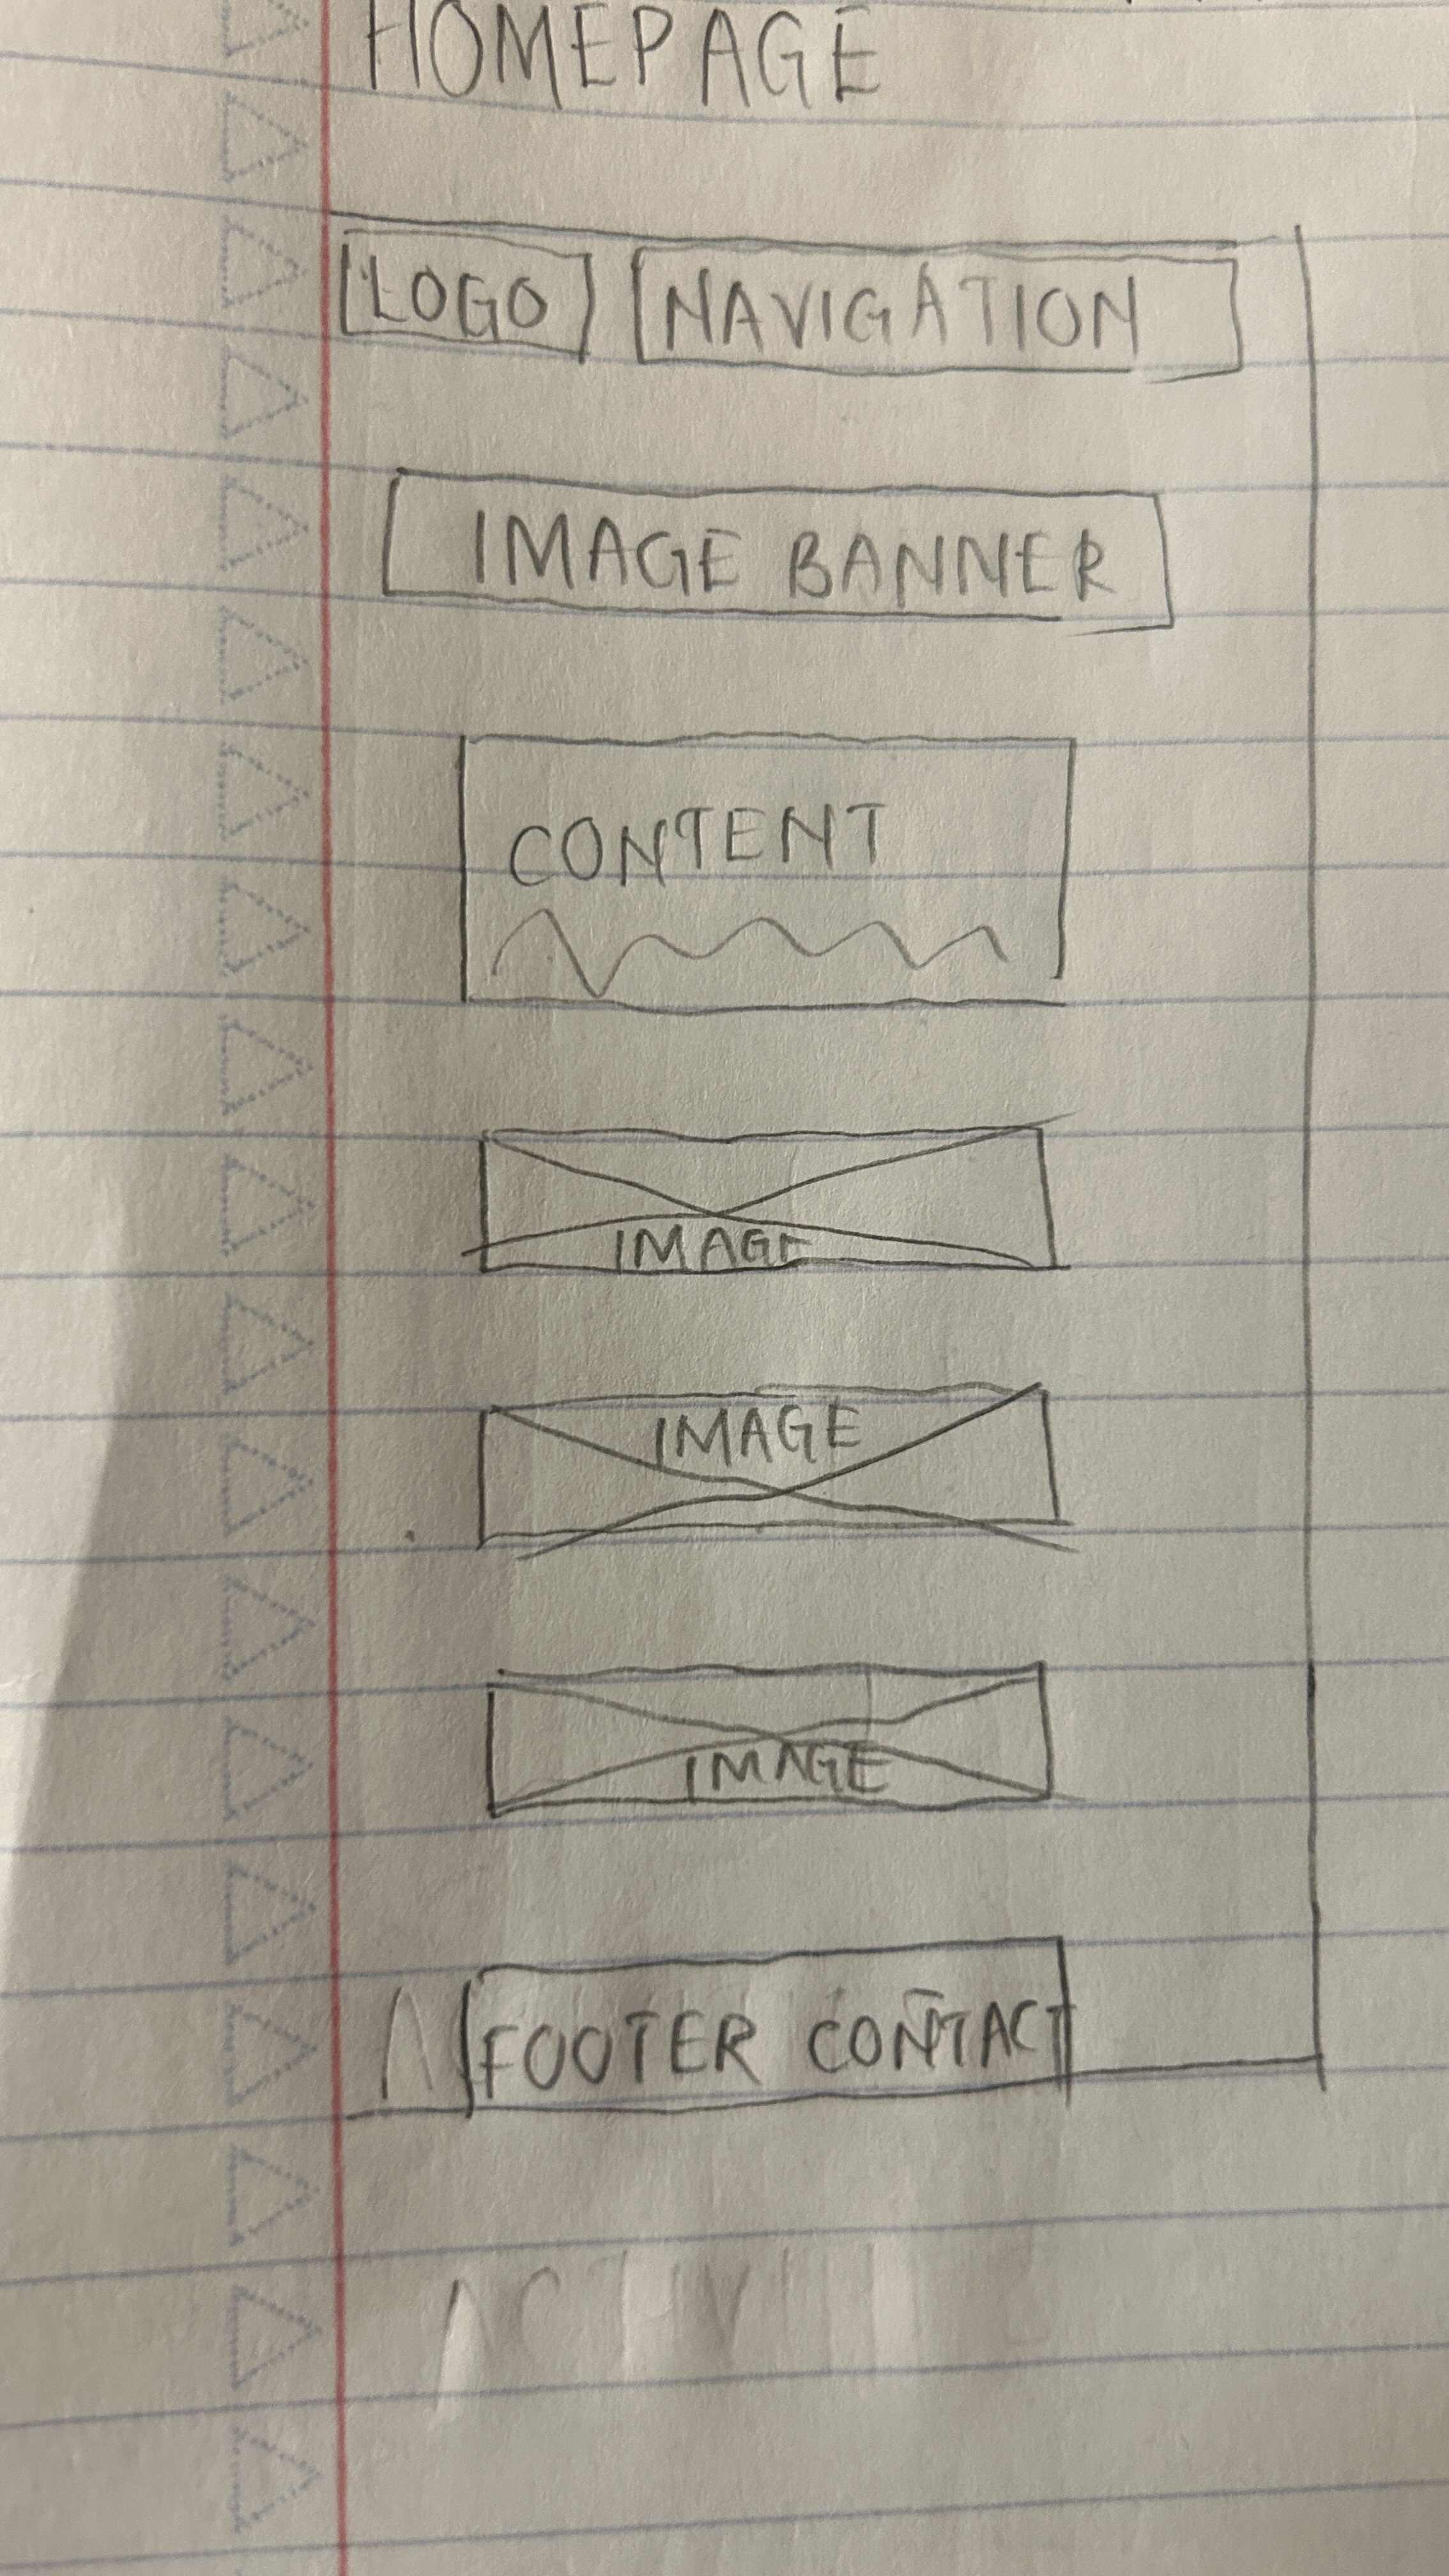 HOMEPAGE
LOGO NAVIGATION
IMAGE BANNER
CONTENT
IMAGE
IMAGE
IMAGE
FOOTER CONTACT